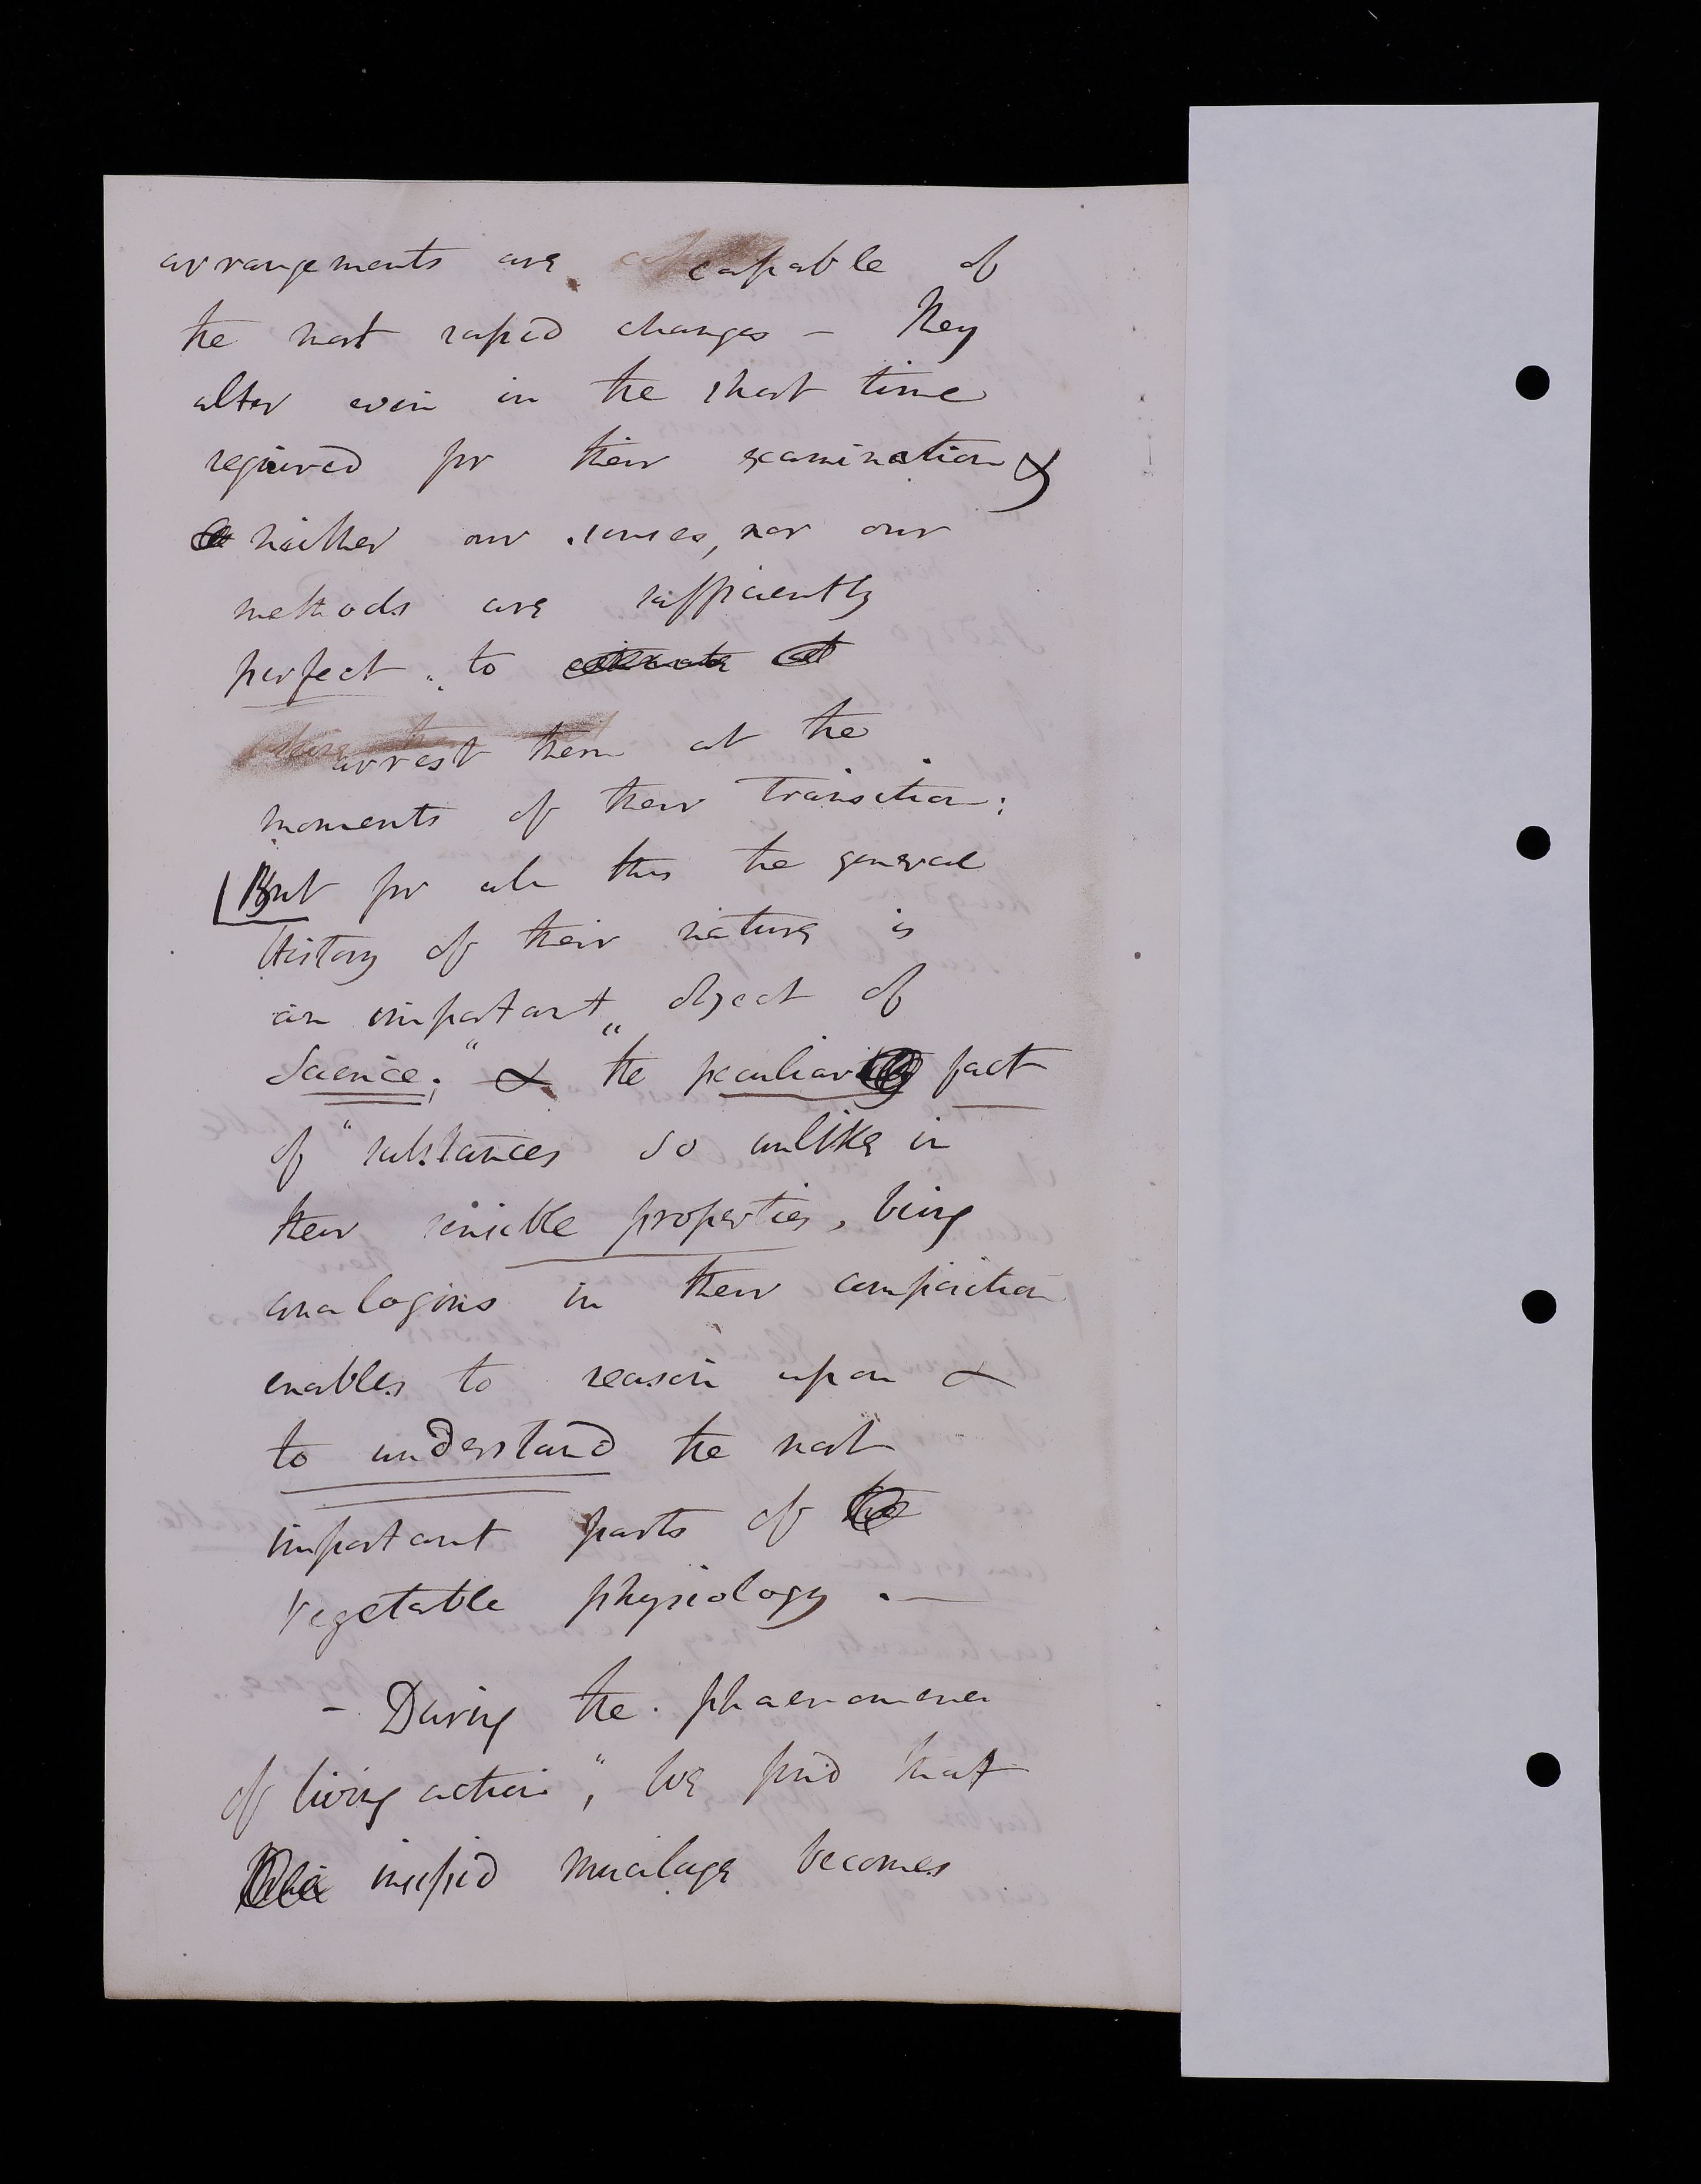 arrangements are capable of
the most rapid changes – They
alter even in the short time
required for their examination &
neither our senses, nor our
methods are sufficiently
perfect „ to
arrest them at the
moments of their transition:
But for all this the general
History of their nature is
an important „ object of
Science; " & the peculiar fact
of " substances so unlike in
their sensible properties, being
analogous in their composition
enables to reason upon &
to understand the most
important parts of the
Vegetable physiology . —
– During the phaenomena
of living action ", we find that
insipid mucilage becomes